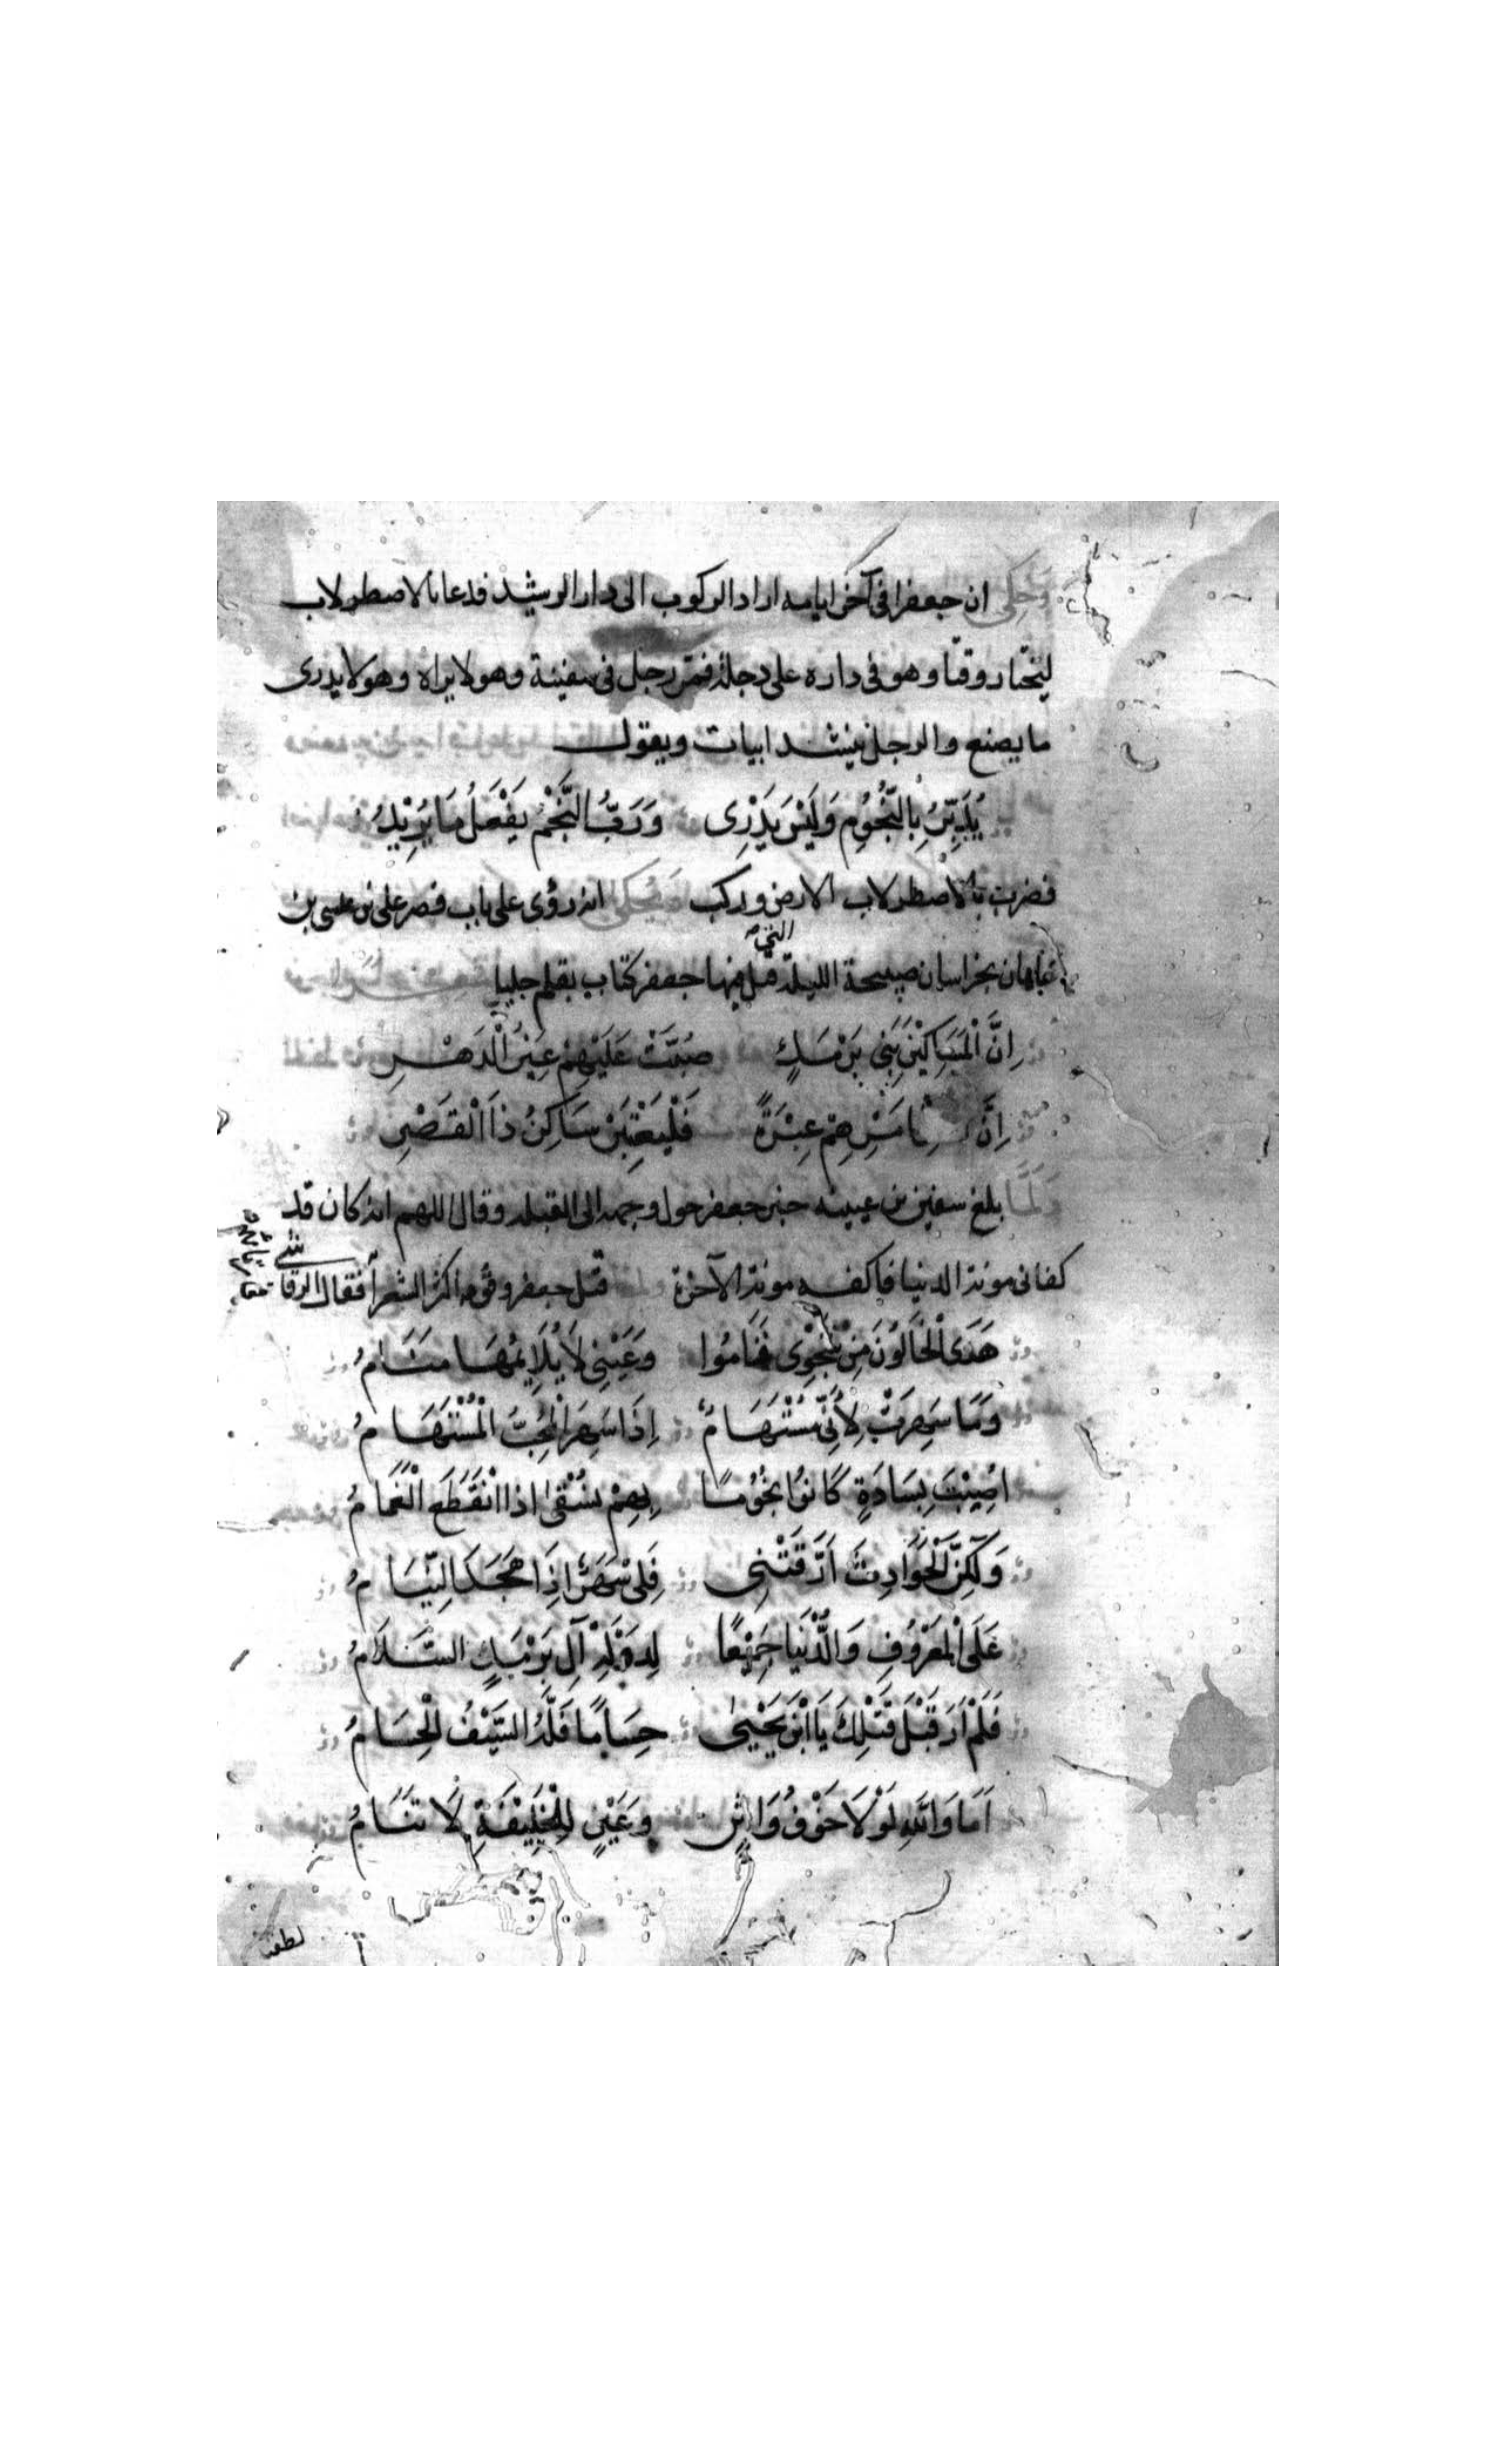 وحكى ان جعفرا فى آخر ايامه اراد الركوب الى دار الرشيد فدعا بالاصطرلاب
ليختار وقتا وهو فى داره على دجلة فمر رجل فى سفينة وهو لا يراه وهو لا يدرى
ما يصنع والرجل ينشد ابيات ويقول
يُدَبِّرُ بِالنُّجُومِ وَلَيْسَ يَدْرِى وَرَبُّ النَّجْمِ يَفْعَلُ مَا يُرِيْدُ
فضرب بالاصطرلاب الارض وركب ويحكى انه رؤى على باب قصر على بن عيسى بن
التى
ماهان بخراسان صبيحة الليلة قتل فيها جعفر كتاب بقلم جليل
اِنَّ الْمَسَاكِيْنَ بَنِى بَرْمَكٍ صُبَّتْ عَلَيْهِمْ غِيَرُ الْدَهْرِ
اِنَّ امْرِهِمْ عِبْرَةً فَلْيَعْتَبِرْ سَاكِنُ ذَا الْقَصْرِ
وَلَمَّا بلغ سفين بن عيينه خبر جعفر حول وجهه الى القبله وقال اللهم انه كان قد
كفانى مونة الدنيا فاكفه مونة الآخرة ولما قتل جعفر وقومه اكثر الشعرآ فقال الرقاشى
هَدَى الْخَالُونَ مِنْ شَجْوِى فَنَامُوا وَعَيْنِى لَا يُلَايِمُهَا مَنَامُ
وَمَا سَهِرَتْ لِأَنِّى مُسْتَهَامُ اِذَا سَهِرَ الْمُحِبُّ الْمُسْتَهَامُ
اُصِيْبَتْ بِسَادَةٍ كَانُوا نُجُوْمًا بِهِمْ نُسْقَى اذا انْقَطَعَ الْغَمَامُ
وَلَكِنَّ الْحَوَادِثَ اَرَّقَتْنِى فَلِى سَهَرٌ اِذَا هَجَدَ النِّيَامُ
عَلَى الْمَعْرُوْفِ وَالدُّنْيَا جَمِيْعًا لِدَوْلَةِ آلِ بَرْمَكٍ السَّلَامُ
فَلَمْ اَرَ قَبْلَ قَتْلِكَ يَا ابْنَ يَحْيَى حِسَامًا فَلَّهُ السَّيْفُ الْحِسَامُ
اَمَا وَاللهِ لَوْلَا خَوْفُ وَاشٍ وَعَيْنٍ لِلْخَلِيْفَةِ لَا تَنَامُ
لطفنا